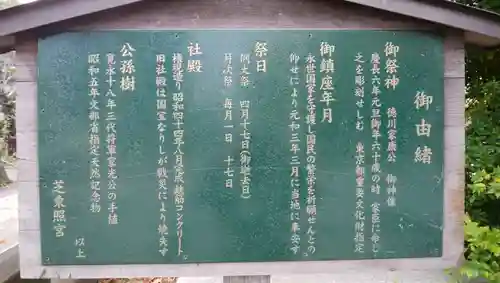 御由緒
御祭神　徳川家康公　御神像
慶長六年元旦御年六十歳の時　家臣に命じ
之を彫刻せしむ　東京都重要文化財指定
御鎮座年月
永世国家を守護し国民の繁栄を祈願せんとの
仰せにより元和三年三月に当地に奉安す
祭日
例大祭　四月十七日（御逝去日）
月次祭　毎月一日　十七日
社殿
権現造り　昭和四十四年八月完成鉄筋コンクリート
旧社殿は国宝なりしが戦災により焼失す
公孫樹
寛永十八年三代将軍家光公の手植
昭和五年文部省指定天然記念物
以上
芝東照宮